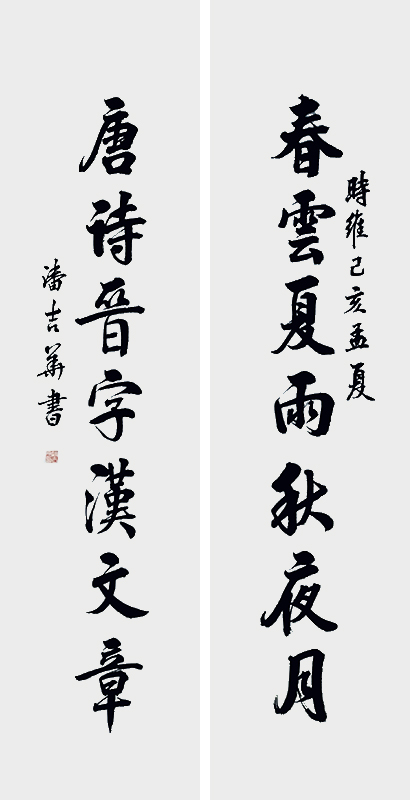 時維己亥孟夏
春雲夏雨秋夜月
唐詩晉字漢文章
潘吉華書